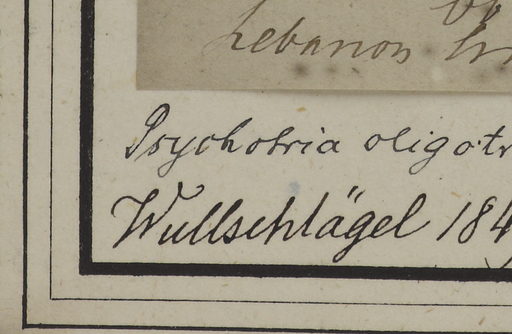 Lebanon
Psychotria oligotr
Wullschlägel 184